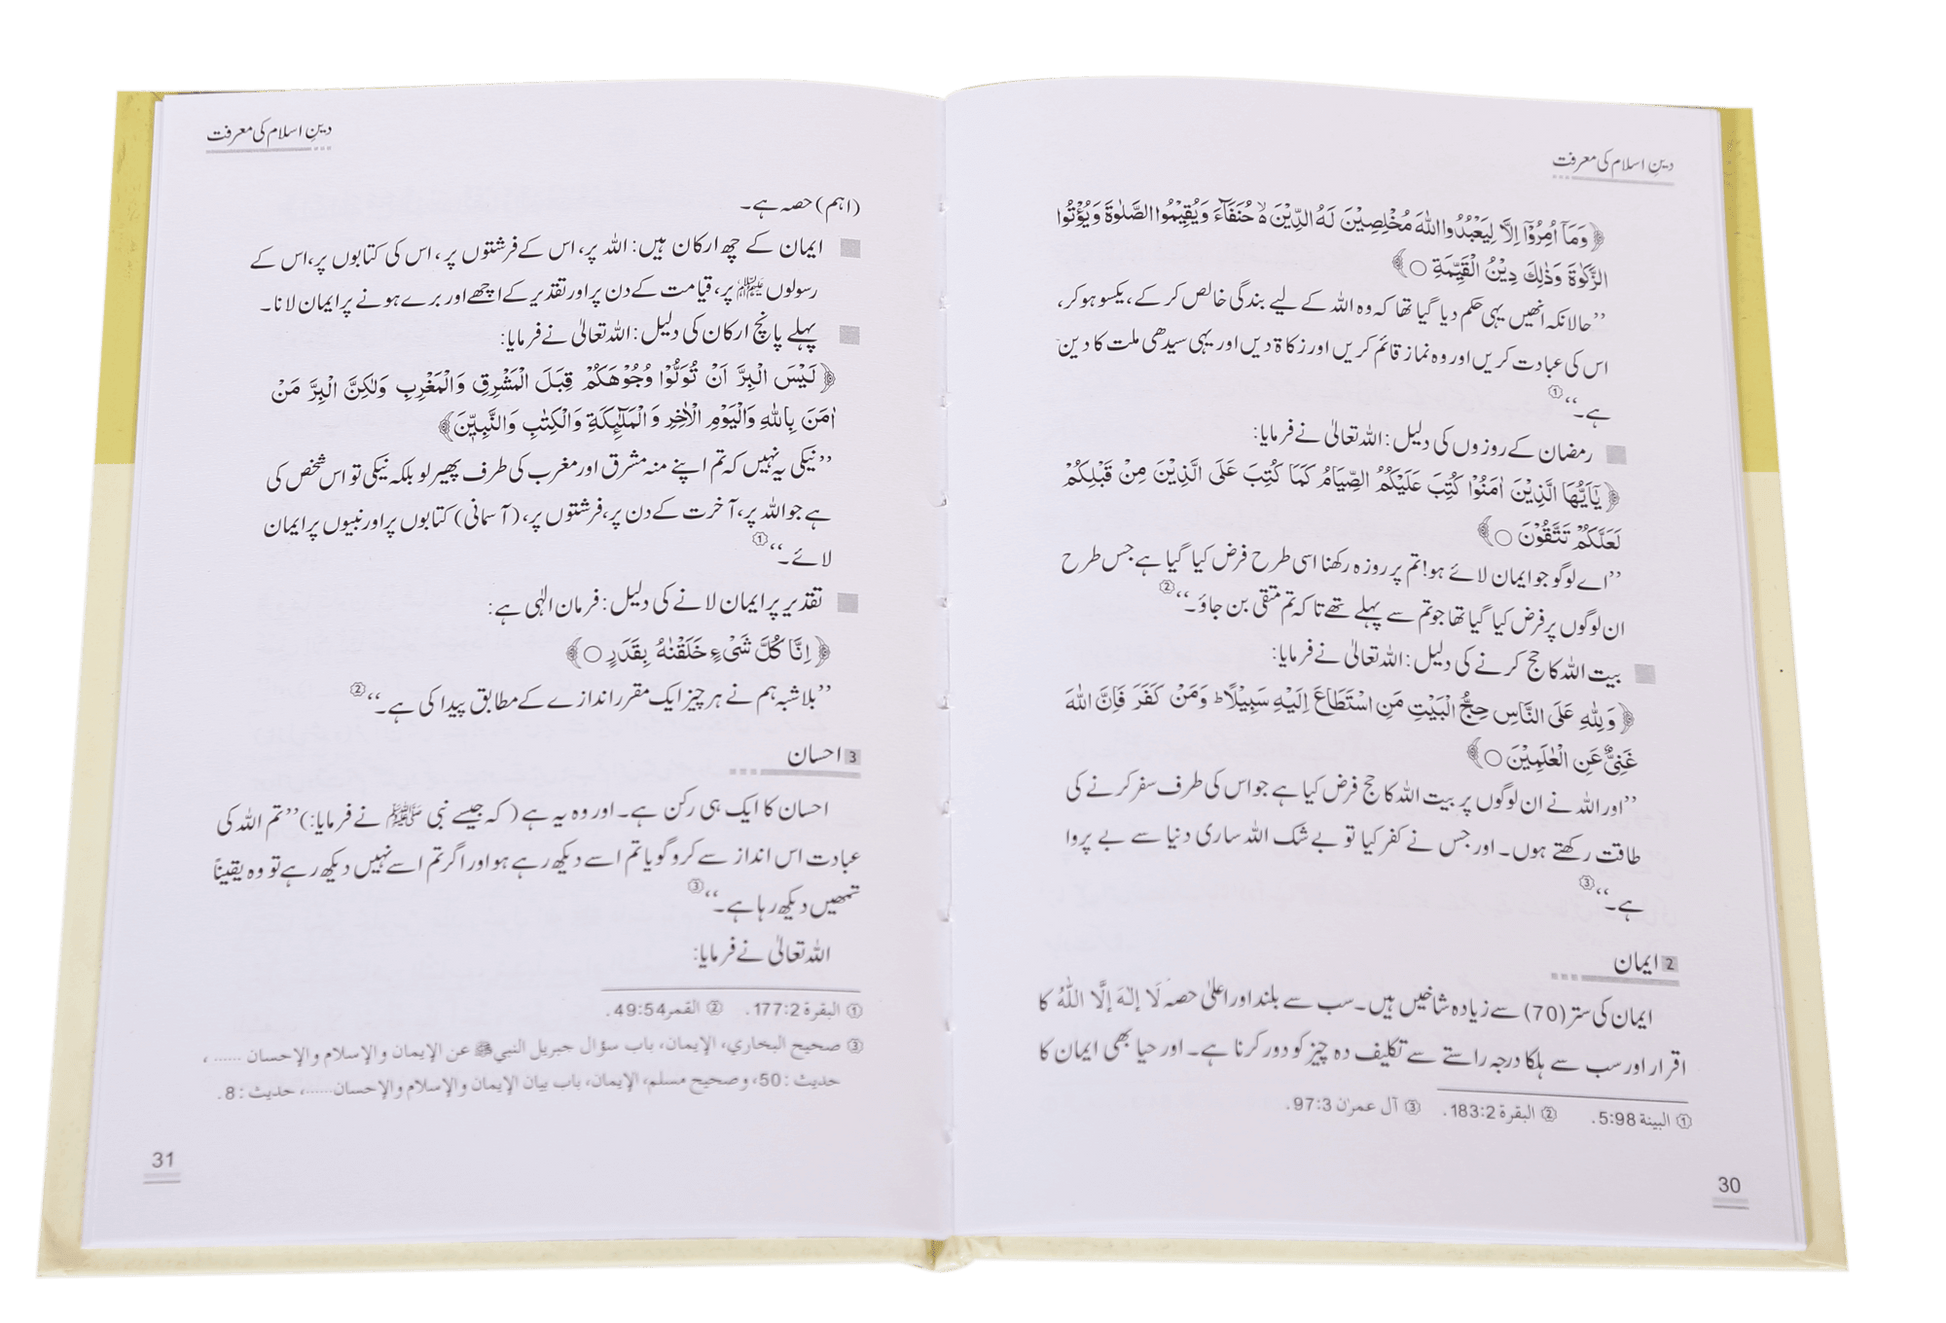 دینِ اسلام کی معرفت
﴿وَمَآ اُمِرُوْٓا اِلَّا لِيَعْبُدُوا اللّٰهَ مُخْلِصِيْنَ لَهُ الدِّيْنَ ۙ حُنَفَآءَ وَيُقِيْمُوا الصَّلٰوةَ وَيُؤْتُوا
الزَّكٰوةَ وَذٰلِكَ دِيْنُ الْقَيِّمَةِ ○﴾
’’حالانکہ انھیں یہی حکم دیا گیا تھا کہ وہ اللہ کے لیے بندگی خالص کر کے، یکسو ہو کر،
اس کی عبادت کریں اور وہ نماز قائم کریں اور زکاۃ دیں اور یہی سیدھی ملت کا دین
ہے۔‘‘①
رمضان کے روزوں کی دلیل: اللہ تعالیٰ نے فرمایا:
﴿يٰٓاَيُّهَا الَّذِيْنَ اٰمَنُوْا كُتِبَ عَلَيْكُمُ الصِّيَامُ كَمَا كُتِبَ عَلَى الَّذِيْنَ مِنْ قَبْلِكُمْ
لَعَلَّكُمْ تَتَّقُوْنَ ○﴾
’’اے لوگو جو ایمان لائے ہو! تم پر روزہ رکھنا اسی طرح فرض کیا گیا ہے جس طرح
ان لوگوں پر فرض کیا گیا تھا جو تم سے پہلے تھے تا کہ تم متقی بن جاؤ۔‘‘②
بیت اللہ کا حج کرنے کی دلیل: اللہ تعالیٰ نے فرمایا:
﴿وَلِلّٰهِ عَلَى النَّاسِ حِجُّ الْبَيْتِ مَنِ اسْتَطَاعَ اِلَيْهِ سَبِيْلًا ؕ وَمَنْ كَفَرَ فَاِنَّ اللّٰهَ
غَنِيٌّ عَنِ الْعٰلَمِيْنَ ○﴾
’’اور اللہ نے ان لوگوں پر بیت اللہ کا حج فرض کیا ہے جو اس کی طرف سفر کرنے کی
طاقت رکھتے ہوں۔ اور جس نے کفر کیا تو بے شک اللہ ساری دنیا سے بے پروا
ہے۔‘‘③
2 ایمان
ایمان کی ستر (70) سے زیادہ شاخیں ہیں۔ سب سے بلند اور اعلیٰ حصہ لَا إِلٰهَ إِلَّا اللّٰهُ کا
اقرار اور سب سے ہلکا درجہ راستے سے تکلیف دہ چیز کو دور کرنا ہے۔ اور حیا بھی ایمان کا
① البینة 5:98. ② البقرة 183:2. ③ آل عمرٰن 97:3.
30
دینِ اسلام کی معرفت
(اہم) حصہ ہے۔
ایمان کے چھ ارکان ہیں: اللہ پر، اس کے فرشتوں پر، اس کی کتابوں پر، اس کے
رسولوں علیہم السلام پر، قیامت کے دن پر اور تقدیر کے اچھے اور برے ہونے پر ایمان لانا۔
پہلے پانچ ارکان کی دلیل: اللہ تعالیٰ نے فرمایا:
﴿لَيْسَ الْبِرَّ اَنْ تُوَلُّوْا وُجُوْهَكُمْ قِبَلَ الْمَشْرِقِ وَالْمَغْرِبِ وَلٰكِنَّ الْبِرَّ مَنْ
اٰمَنَ بِاللّٰهِ وَالْيَوْمِ الْاٰخِرِ وَالْمَلٰٓئِكَةِ وَالْكِتٰبِ وَالنَّبِيّٖنَ﴾
’’نیکی یہ نہیں کہ تم اپنے منہ مشرق اور مغرب کی طرف پھیر لو بلکہ نیکی تو اس شخص کی
ہے جو اللہ پر، آخرت کے دن پر، فرشتوں پر، (آسمانی) کتابوں پر اور نبیوں پر ایمان
لائے۔‘‘①
تقدیر پر ایمان لانے کی دلیل: فرمان الٰہی ہے:
﴿اِنَّا كُلَّ شَيْءٍ خَلَقْنٰهُ بِقَدَرٍ ○﴾
’’بلاشبہ ہم نے ہر چیز ایک مقرر اندازے کے مطابق پیدا کی ہے۔‘‘②
3 احسان
احسان کا ایک ہی رکن ہے۔ اور وہ یہ ہے (کہ جیسے نبی ﷺ نے فرمایا:) ’’تم اللہ کی
عبادت اس انداز سے کرو گویا تم اسے دیکھ رہے ہو اور اگر تم اسے نہیں دیکھ رہے تو وہ یقیناً
تمھیں دیکھ رہا ہے۔‘‘③
اللہ تعالیٰ نے فرمایا:
① البقرة 177:2. ② القمر 49:54.
③ صحيح البخاري، الإيمان، باب سؤال جبريل النبي ﷺ عن الإيمان والإسلام والإحسان ......،
حديث: 50، وصحيح مسلم، الإيمان، باب بيان الإيمان والإسلام والإحسان......، حديث: 8.
31